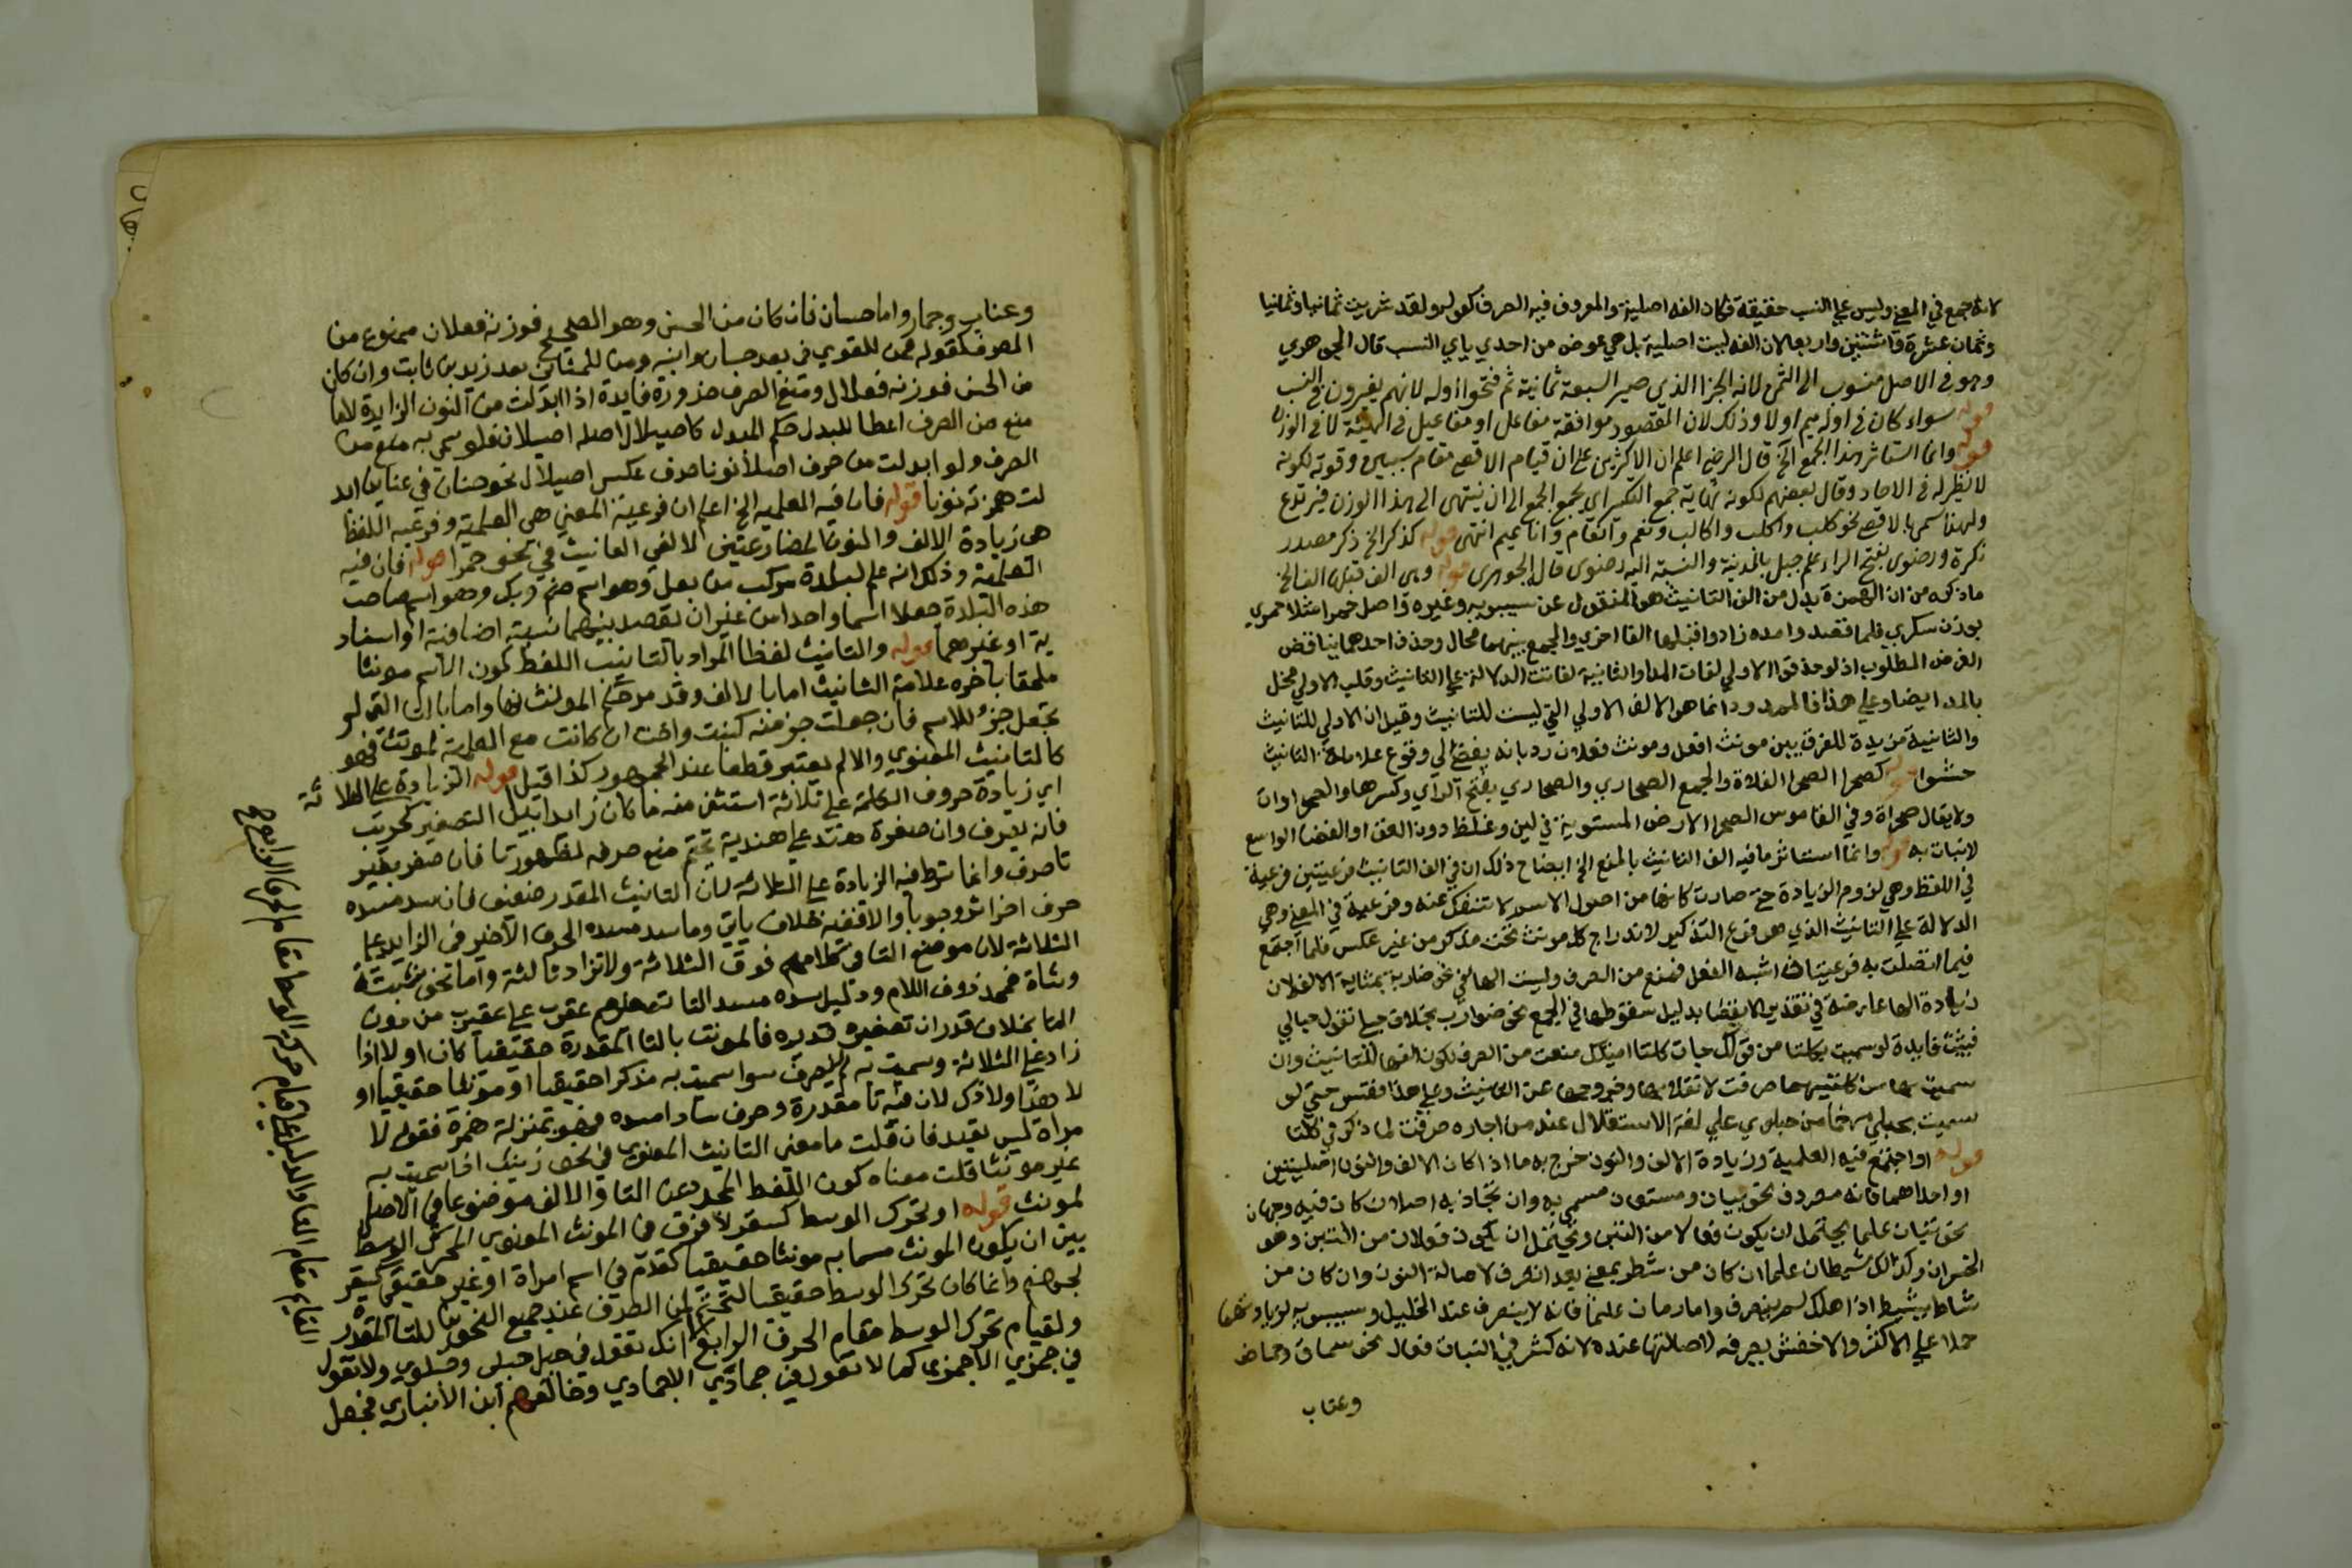 لانه جمع في المعني وليس علي النسب حقيقة فكان الفه اصلية والمعروف فيه الصرف كقوله ولقد شربت ثمانيا وثمانيا
وثمان عشرة واثنتين واربعا لان الفه ليست اصلية بل هي عوض من احدي ياي النسب قال الجوهري
وهو في الاصل منسوب الي الثمن لانه الجزا الذي صير السبعة ثمانية ثم فتحوا اوله لانهم يغيرون في النسب
قوله سواء كان في اوله ميم اولا وذلك لان المقصود موافقة مفاعل او مفاعيل في الهيئة لا في الوزن
قوله وانما استاثر هذا الجمع الخ قال الرضي اعلم ان الاكثرين علي ان قيام الاقصي مقام سببين وقوته لكونه
لا نظير له في الاحاد وقال بعضهم لكونه نهاية جمع التكسير اي يجمع الجمع الي ان ينتهي الي هذا الوزن فيرتدع
ولهذا سمي بالاقصي نحو كلب واكلب واكالب ونعم وانعام واناعيم انتهي قوله كذكري الخ ذكر مصدر
نكرة ورضوي بفتح الراء علم جبل بالمدينة والنسبة اليه رضوي قال الجوهري قوله وهي الف قبلها الف الخ
ماذكره من ان الهمزة بدل من الف التانيث هو المنقول عن سيبويه وغيره واصل حمرا مثلا حمري
بوزن سكري فلما قصدوا مده زادوا قبلها الفا اخري والجمع بينهما محال وحذف احدهما يناقض
الغرض المطلوب اذ لو حذفوا الاولي لفات المد او الثانية لفاتت الدلالة علي التانيث وقلب الاولي مخل
بالمد ايضا وعلي هذا فالممدود انما هو الالف الاولي التي ليست للتانيث وقيل ان الاولي للتانيث
والثانية مزيدة للفرق بين مونث افعل ومونث فعلان رد بانه يفضي الي وقوع علامة التانيث
حشوا قوله كصحرا الصحرا الفلاة والجمع الصحاري والصحاري بفتح الراي وكسرها والصحراوات
ولا يقال صحراة وفي القاموس الصحرا الارض المستوية في لين وغلظ دون القف او الفضا الواسع
لانبات به قوله وانما استاثر مافيه الف التانيث بالمنع الخ ايضاح ذلك ان في الف التانيث فرعيتين فرعية
في اللفظ وهي لزوم الزيادة حتي صارت كانها من اصول الاسم لا تنفك عنه وفرعية في المعني وهي
الدلالة علي التانيث الذي هو فرع التذكير لاندراج كل مونث تحت مذكر من غير عكس فلما اجتمع
فيما اتصلت به فرعيتان اشبه الفعل فمنع من الصرف وليست الهاء في نحو ضاربة بمثابة الالف لان
زيادة الها عارضة في تقدير الانفصا بدليل سقوطها في الجمع نحو ضوارب بخلاف حبلي تقول حبالي
فبقيت فايدة لو سميت بكلتا من قولك جات كلتا امنعت من الصرف لكون الفها للتانيث وان
سميت بها من كلتيهما صرفت لانقلابها وخروجها عن التانيث وعلي هذا فقس حتي لو
سميت بحبلي مرخما من حبلوي علي لغة الاستقلال عند من اجازه صرفت لما ذكر في كلتا
قوله او اجتمع فيه العلمية وزيادة الالف والنون خرج به ما اذا كان الالف والنون اصليتين
او احداهما فانه مصروف نحو بيان ومستعان مسمي به وان تجاذبه اصلان كان فيه وجهان
نحو تبان علما يحتمل ان يكون فعالا من التبن ويحتمل ان يكون فعلان من التبن وهو
الخسران وكذلك شيطان علما ان كان من شطن بمعني بعد انصرف لاصالة النون وان كان من
شاط يشيط اذا هلك لم ينصرف واما رمان علما فانه لا ينصرف عند الخليل وسيبويه
حملا علي الاكثر والاخفش يصرفه لاصالتها عنده لانه كثر في النبات فعال نحو سماق وحماض
وعناب
وعناب وجمار واما حسان فان كان من الحس وهو الصحيح فوزنه فعلان ممنوع من
الصرف كقوله
من الحسن فوزنه فعلال ومنع الصرف ضرورة فايدة اذا ابدلت من النون الزايدة لاما
منع من الصرف اعطا للبدل حكم المبدل كاصيلال اصله اصيلان فلو سمي به منع من
الصرف ولو ابدلت من حرف اصلا نونا صرف عكس اصيلال نحو حنان في حناء ابد
لت همزته نونا قوله فان فيه العلمية الخ اعلم ان فرعية المعني هي العلمية وفرعية اللفظ
هي زيادة الالف والنون المضارعتين لالفي التانيث في نحو حمرا قوله فان فيه
العلمية وذلك انه علم لبلدة مركب من بعل وهو اسم صنم وبك وهو اسم صاحب
هذه البلدة جعلا اسما واحدا من غير ان يقصد بينهما نسبة اضافية او اسناد
ية او غيرهما قوله والتانيث لفظا المراد بالتانيث اللفظ كون الاسم مونثا
ملحقا باخره علامة التانيث اما بالالف وقد مر حكم المونث بها واما بالتاء التي لم
تجعل جزء للاسم فان جعلت جز منه كبنت واخت ان كانت مع العلمية لمونث فهو
كالتانيث المعنوي والا لم يعتبر قطعا عند الجمهور كذا قيل قوله الزيادة علي الثلاثة
اي زيادة حروف الكلمة علي ثلاثة استثني منه ما كان زايدا قبل التصغير كحريب
فانه يصرف وان صغرت هند علي هنيدة تحتم منع صرفه لظهور التا فان صغر بغير
تا صرف وانما شرط فيه الزيادة علي الثلاثة لان التانيث المقدر ضعيف فان سد مسده
حرف اخر اثر وجوبا والا ففيه خلاف ياتي وما سد مسده الحرف الاخير في الزايد علي
الثلاثة لان موضع التا في كلامهم فوق الثلاثة ولا تزاد ثالثة واما نحو ثبة
وشاة فمحذوف اللام ودليل سده مسد التا تصغيرهم عقرب علي عقيرب من دون
التا بخلاف قدر ان تصغيره قديرة فالمونث بالتا المقدرة حقيقيا كان اولا اذا
زاد علي الثلاثة وسميت به لم ينصرف سوا سميت به مذكرا حقيقيا او مونثا حقيقيا او
لا هذا ولا ذك لان فيه تا مقدرة وحرف ساد مسده فهو بمنزلة حمزة فقوله لا
مراة ليس بقيد فان قلت ما معني التانيث المعنوي في نحو زينب اذا سميت به
غير مونث قلت معناه كون اللفظ المجرد عن التا والالف موضوعا في الاصل
لمونث قوله او تحرك الوسط كسقر لا فرق في المونث المعنوي المحرك الوسط
بين ان يكون المونث مسما به مونثا حقيقيا كقدم في اسم امراة او غير حقيقي كسقر
لجهنم وانما كان تحرك الوسط حقيقيا لتحتم من الصرف عند جميع النحويين للتا المقدرة
ولقيام تحرك الوسط مقام الحرف الرابع الا انك تقول في حبلي حبلي وحبلوي ولا تقول
في جمزي الا جمزي كما لا تقول في جمادي الا جمادي وخالفهم ابن الانباري فجعل
القايم مقام التا والدليل علي قيام حركة الوسط مقام الحرف الرابع